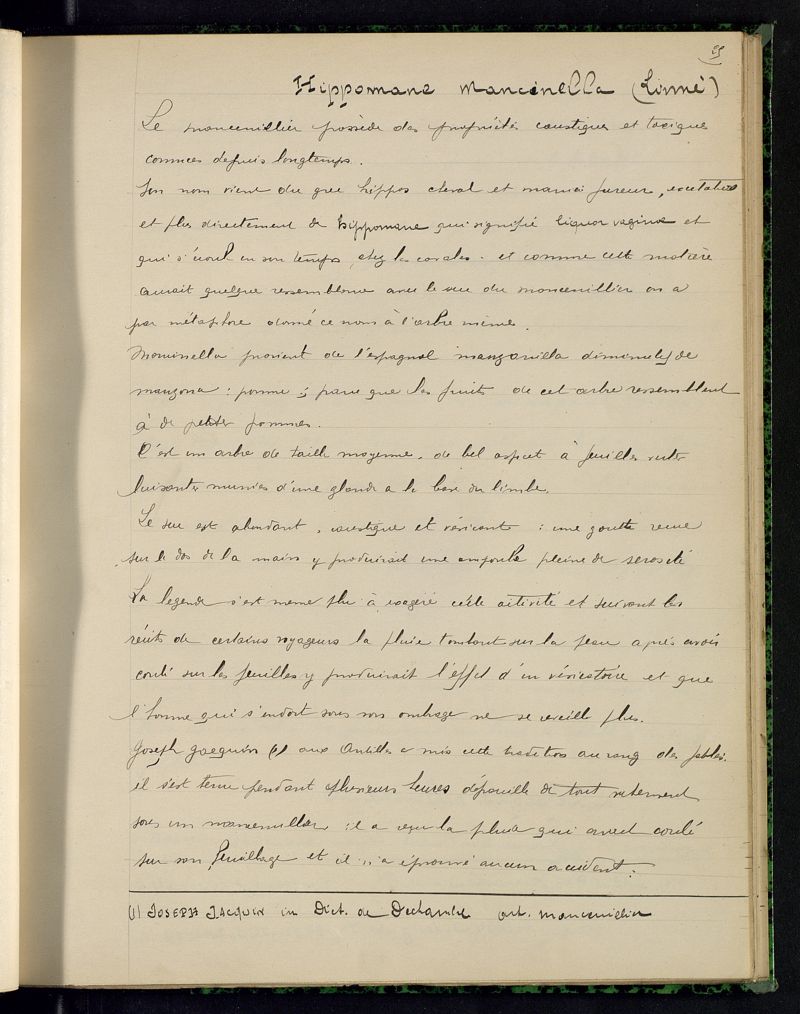 Hippomane Mancenella (Linné)
Le mancenillier possède des propriétés caustiques et toxiques
connues depuis longtemps.
Son nom vient du grec hippos cheval et mania fureur, excitation
et plus directement de hippomane qui signifie liquor vaginae et
qui s'écoule en son temps, chez les cavales. et comme cette matière
aurait quelque ressemblance avec le suc du mancenillier on a
par métaphore donné ce nom à l'arbre même.
Mancinella provient de l'espagnol manzanilla diminutif de
manzana : pomme ; parce que les fruits de cet arbre ressemblent
à de petites pommes.
C'est un arbre de taille moyenne, de bel aspect à feuilles vertes
luisantes munies d'une glande a la base du limbe.
Le suc est abondant, caustique et vésicant : une goutte reçue
sur le dos de la main y produirait une ampoule pleine de serosité
La legende s'est meme plu à exagéré cette activité et suivant les
récits de certains voyageurs la pluie tombant sur la peau après avoir
coulé sur les feuilles y produirait l'effet d'un vésicatoire et que
l'homme qui s'endort sous son ombrage ne se reveille plus.
Joseph Jacquin (1) aux Antilles a mis cette tradition au rang des fables.
il s'est tenu pendant plusieurs heures dépouillé de tout vetement
sous un mancenillier, il a reçu la pluie qui avait coulé
sur son feuillage et il n'a éprouvé aucun accident.
(1) JOSEPH JACQUIN in Dict. de Dechambre art. Mancenillier